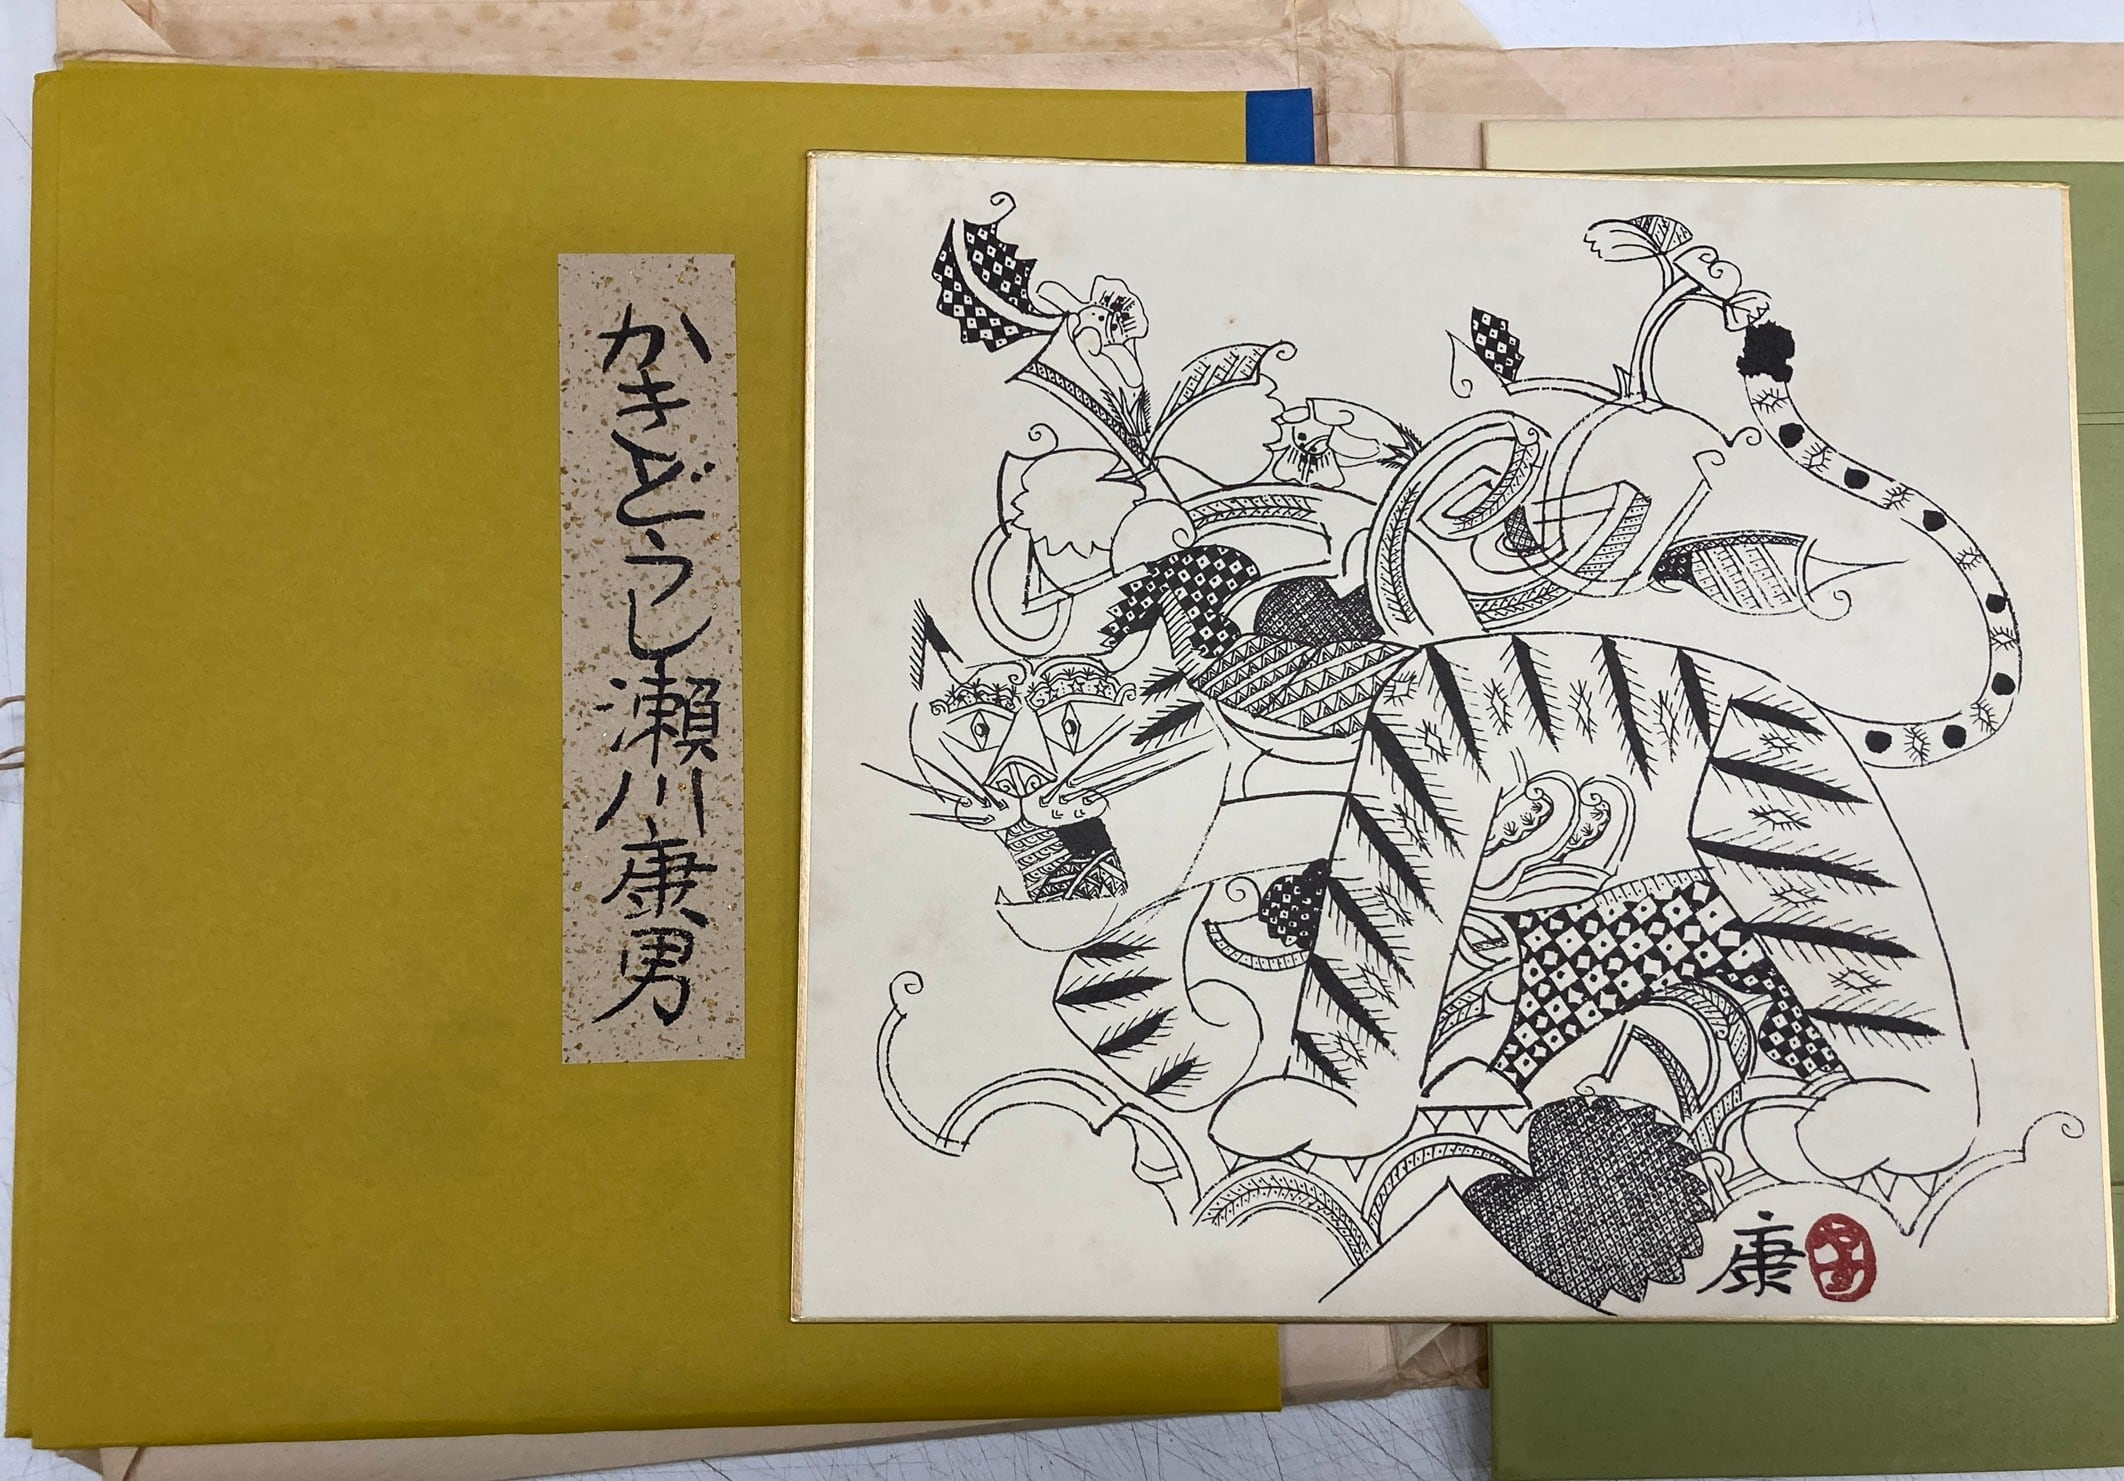 かきどうし瀬川康男
康